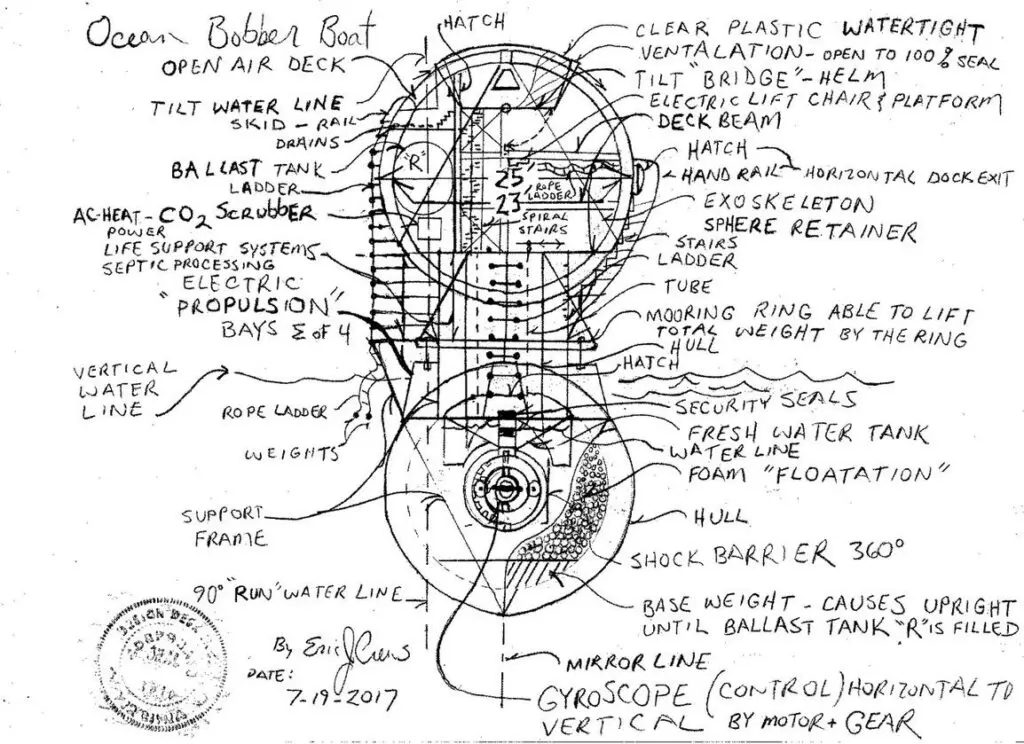 Ocean Bobber Boat
OPEN AIR DECK
TILT WATER LINE
SKID - RAIL
DRAINS
BALLAST TANK
LADDER
AC-HEAT-CO2 SCRUBBER
POWER
LIFE SUPPORT SYSTEMS
SEPTIC PROCESSING
ELECTRIC
"PROPULSION"
BAYS Σ of 4
VERTICAL
WATER
LINE
ROPE LADDER
WEIGHTS
SUPPORT
FRAME
90° "RUN" WATER LINE
By Eric J Crews
DATE:
7-19-2017
HATCH
"R"
25'
23'
ROPE
LADDER
SPIRAL
STAIRS
CLEAR PLASTIC WATERTIGHT
VENTALATION - OPEN TO 100% SEAL
TILT "BRIDGE" - HELM
ELECTRIC LIFT CHAIR & PLATFORM
DECK BEAM
HATCH
HAND RAIL
HORIZONTAL DOCK EXIT
EXOSKELETON
SPHERE RETAINER
STAIRS
LADDER
TUBE
MOORING RING ABLE TO LIFT
TOTAL WEIGHT BY THE RING
HULL
HATCH
SECURITY SEALS
FRESH WATER TANK
WATER LINE
FOAM "FLOATATION"
HULL
SHOCK BARRIER 360°
BASE WEIGHT - CAUSES UPRIGHT
UNTIL BALLAST TANK "R" IS FILLED
MIRROR LINE
GYROSCOPE (CONTROL) HORIZONTAL TO
VERTICAL BY MOTOR + GEAR